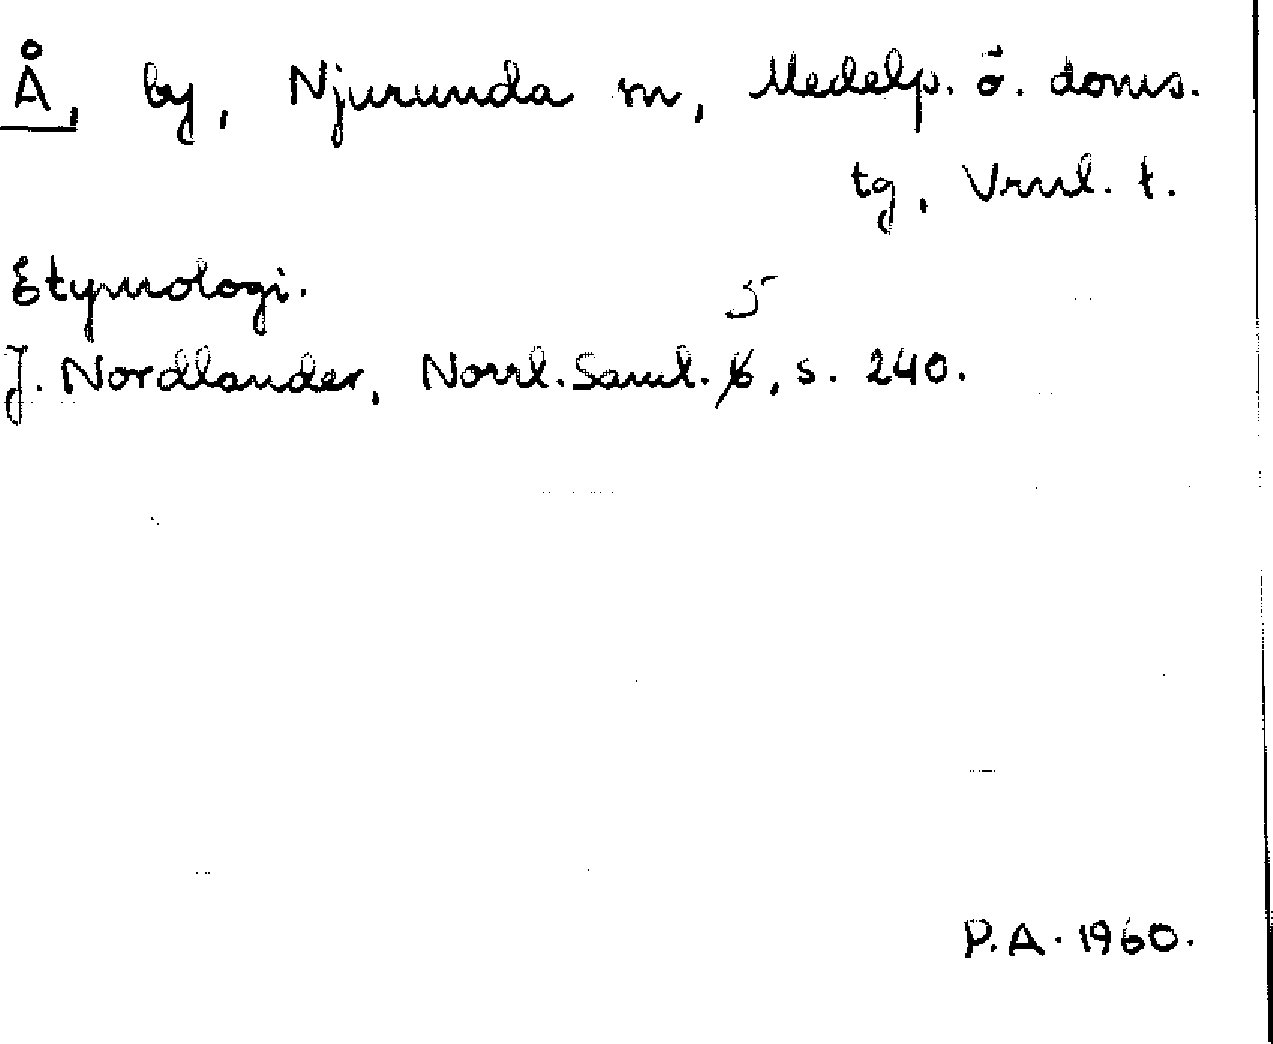 Å, by, Njurunda sn, Medelp. ö. doms.
tg, Vrnl. t.
Etymologi.
5
J. Nordlander, Norrl. Saml. 6, s. 240.
P.A. 1960.